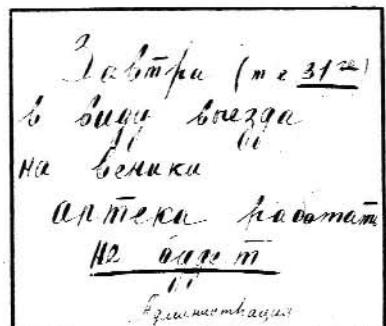 Завтра (т е 31го)
в виду выезда
на веники
аптека работать
не будет
Администрация